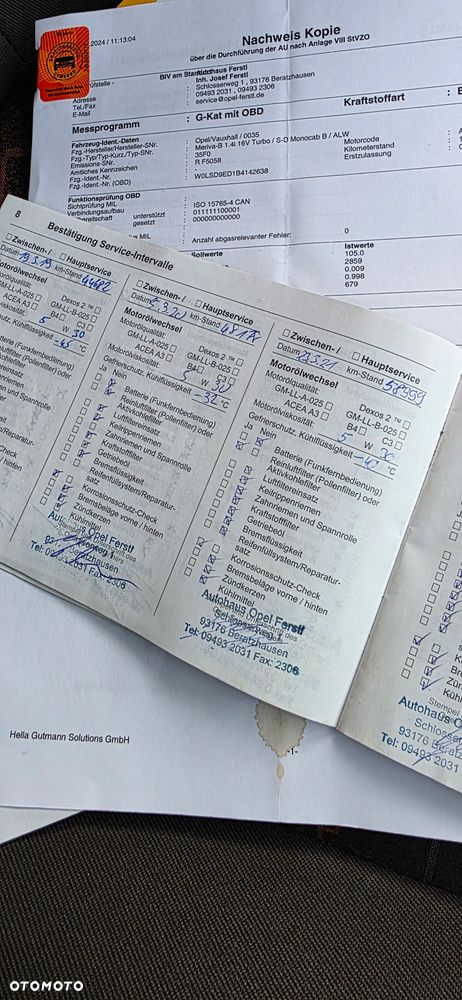 2024 / 11:13:04
Nachweis Kopie
über die Durchführung der AU nach Anlage VIII StVZO
BIV am Standort
Autohaus Ferstl
Inh. Josef Ferstl
Schlosserweg 1 , 93176 Beratzhausen
09493 2031 , 09493 2306
service@opel-ferstl.de
Adresse
Tel./Fax
E-Mail
Messprogramm : G-Kat mit OBD
Kraftstoffart : B
Fahrzeug-Ident.-Daten
Fzg.-Hersteller/Hersteller-SNr. : Opel/Vauxhall / 0035
Fzg.-Typ/Typ-Kurz./Typ-SNr. : Meriva-B 1.4i 16V Turbo / S-D Monocab B / ALW
Emissions-SNr. : 35F0
Amtliches Kennzeichen : R F5058
Fzg.-Ident.-Nr. : W0LSD9ED1B4142638
Fzg.-Ident.-Nr. (OBD)
Motorcode
Kilometerstand
Erstzulassung
Funktionsprüfung OBD
Sichtprüfung MIL
Verbindungsaufbau : ISO 15765-4 CAN
unterstützt : 011111100001
gesetzt : 000000000000
Anzahl abgasrelevanter Fehler: 0
Sollwerte
Istwerte
105.0
2859
0.009
0.998
679
8 Bestätigung Service-Intervalle
Zwischen- / Hauptservice
Datum 19.3.19 km-Stand 44682
Motorölwechsel
Dexos 2 ™
GM-LL-A-025 GM-LL-B-025
ACEA A3 B4 C3
5 W 30
Zwischen- / Hauptservice
Datum km-Stand
Motorölwechsel
Motorölqualität: Dexos 2 ™
GM-LL-A-025 GM-LL-B-025
ACEA A3 B4 C3
Motorölviskosität: 5 W 30
Gefrierschutz, Kühlflüssigkeit -32 °C
Ja Nein
Batterie (Funkfernbedienung)
Reinluftfilter (Pollenfilter) oder
Aktivkohlefilter
Luftfiltereinsatz
Keilrippenriemen
Zahnriemen und Spannrolle
Kraftstofffilter
Getriebeöl
Bremsflüssigkeit
Reifenfüllsystem/Reparatur-
satz
Korrosionsschutz-Check
Bremsbeläge vorne / hinten
Zündkerzen
Kühlmittel
Autohaus Opel Ferstl
Beratzhausen
Tel: 09493 2031 Fax: 2306
Zwischen- / Hauptservice
Datum km-Stand 58999
Motorölwechsel
Motorölqualität: Dexos 2 ™
GM-LL-A-025 GM-LL-B-025
ACEA A3 B4 C3
Motorölviskosität: 5 W 30
Gefrierschutz, Kühlflüssigkeit -40 °C
Ja Nein
Batterie (Funkfernbedienung)
Reinluftfilter (Pollenfilter) oder
Aktivkohlefilter
Luftfiltereinsatz
Keilrippenriemen
Zahnriemen und Spannrolle
Kraftstofffilter
Getriebeöl
Bremsflüssigkeit
Reifenfüllsystem/Reparatur-
satz
Korrosionsschutz-Check
Bremsbeläge vorne / hinten
Zündkerzen
Kühlmittel
Autohaus Opel Ferstl
Schlosserweg 1
93176 Beratzhausen
Tel: 09493 2031 Fax: 2306
Stempel
Autohaus
Schlosser
93176 Beratzhausen
Tel: 09493 2031
Hella Gutmann Solutions GmbH
OTOMOTO